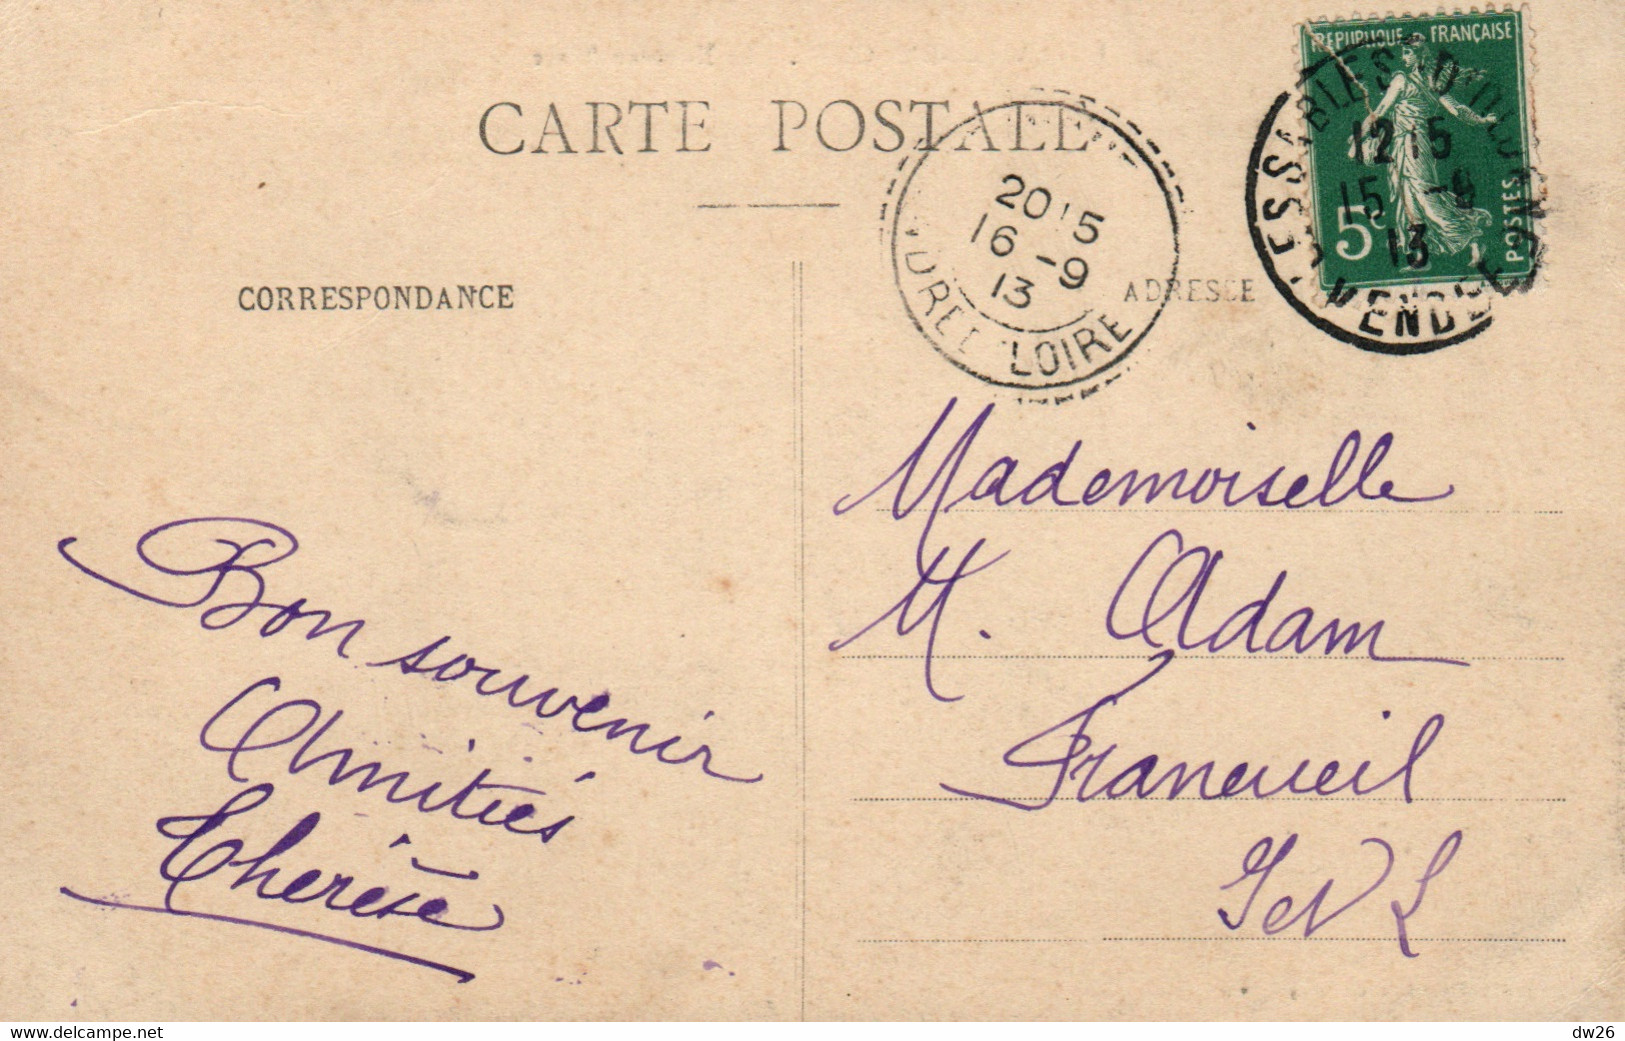 CARTE POSTALE
RÉPUBLIQUE FRANÇAISE
POSTES
5c
LES SABLES D'OLONNE
12 15
15 -9
13
VENDÉE
20 15
16 -9
13
INDRE ET LOIRE
CORRESPONDANCE
ADRESSE
Bon souvenir
Amitiés
Therèse
Mademoiselle
M. Adam
Francueil
I et L
www.delcampe.net
dw26